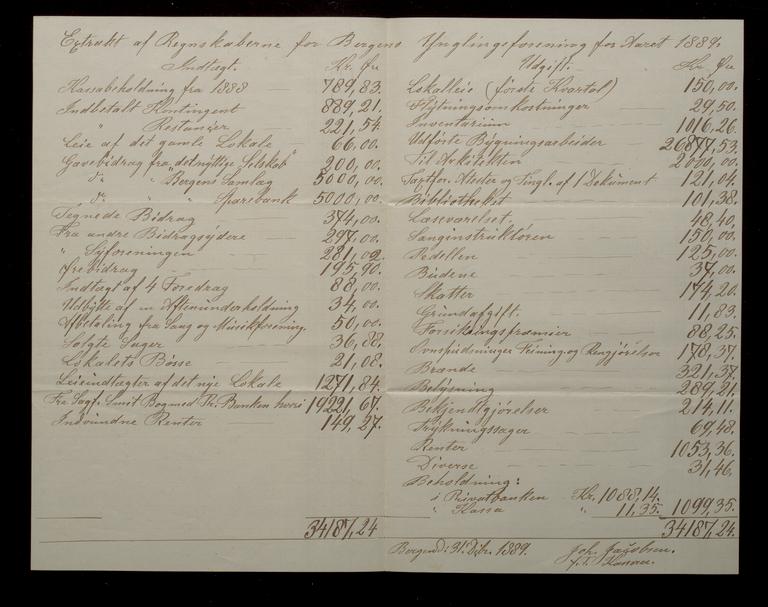 Extrakt af Regnskaberne for Bergens Ynglingeforening for Aaret 1889.
Indtægt. Kr. Øre
Kassabeholdning fra 1888 789,83.
Indbetalt Kontingent 889,21.
" Restanser 221,54
Leie af det gamle Lokale 66,00.
Gavebidrag fra "det nyttige Selskab" 200,00.
do " Bergens Samlag 5000,00.
do " " Sparebank 5000,00.
Tegnede Bidrag 374,00.
Fra andre Bidragsydere 297,00.
" Syforeningen 281,02.
Ørebidrag 195,90.
Indtægt af 4 Foredrag 88,00.
Udbytte af en Aftenunderholdning 34,00.
Afbetaling fra Sang og Musikforening. 50,00.
Solgte Sager 36,88.
Lokalets Bøsse 21,08.
Leieindtægter af det nye Lokale 1271,84.
Fra Sagf. Smit Bogmed Th. Banken 19221,67.
Indvundne Renter 149,27.
34187,24
Udgift. Kr. Øre
Lokalleie (første Kvartal) 150,00.
Flytningsomkostninger 29,50.
Inventarium 1016,26.
Udførte Bygningsarbeider 26877,53.
Til Arkitekten 2000,00.
Attester og Tingl. af 1 Dokument 121,04.
Bibliotheket 101,38.
Læseværelset 48,40,
Sanginstruktøren 150,00.
Pedellen 125,00.
Budene 37,00.
Skatter 174,20.
Grundafgift. 11,83.
Forsikringspræmier 88,25.
Feining, og Rengjørelse 178,37.
Brænde 321,37.
Belysning 289,21.
Bekjendtgjørelser 214,11.
Trykningssager 69,48.
Renter 1053,36.
Diverse 31,46.
Beholdning:
i Privatbanken Kr. 1088,14.
" Kassa " 11,35. 1099,35.
34187,24.
Bergen d: 31. Dcbr. 1889. Joh. Jacobsen.
f. T. Kasserer.